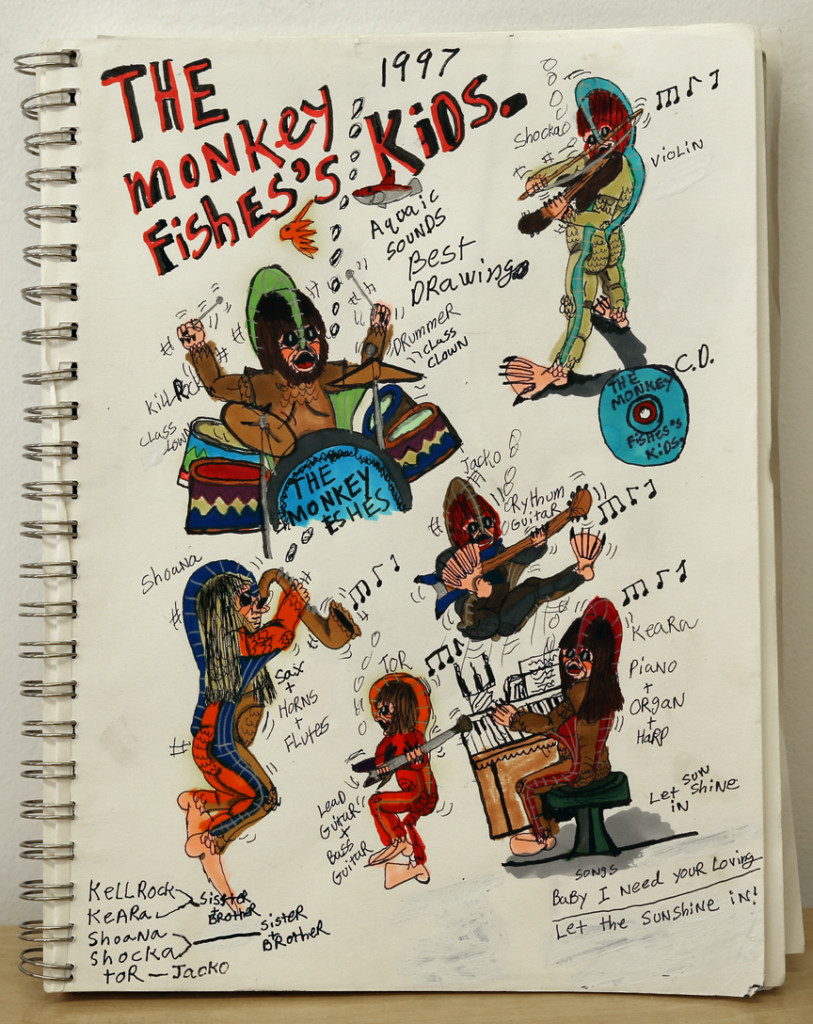 1997
THE
MONKEY
FISHES'S KIDS.
AQUAIC
SOUNDS
BEST
DRAWING
Shocka
VIOLIN
DRUMMER
CLASS
CLOWN
KILLROCK
CLASS
CLOWN
THE
MONKEY
FISHES
C.D.
THE
MONKEY
FISHES'S
KIDS.
JACKO
RYTHUM
GUITAR
Shoana
SAX
+
HORNS
+
FLUTES
TOR
LEAD
GUITAR
+
BASS
GUITAR
KEARA
PIANO
+
ORGAN
+
HARP
Let SUN
SHINE
IN
SONGS
BABY I NEED YOUR LOVING
LET THE SUNSHINE IN!
KELLROCK
KEARA
SISSTER
+
BROTHER
SHOANA
SHOCKA
SISTER
+
BROTHER
TOR — JACKO